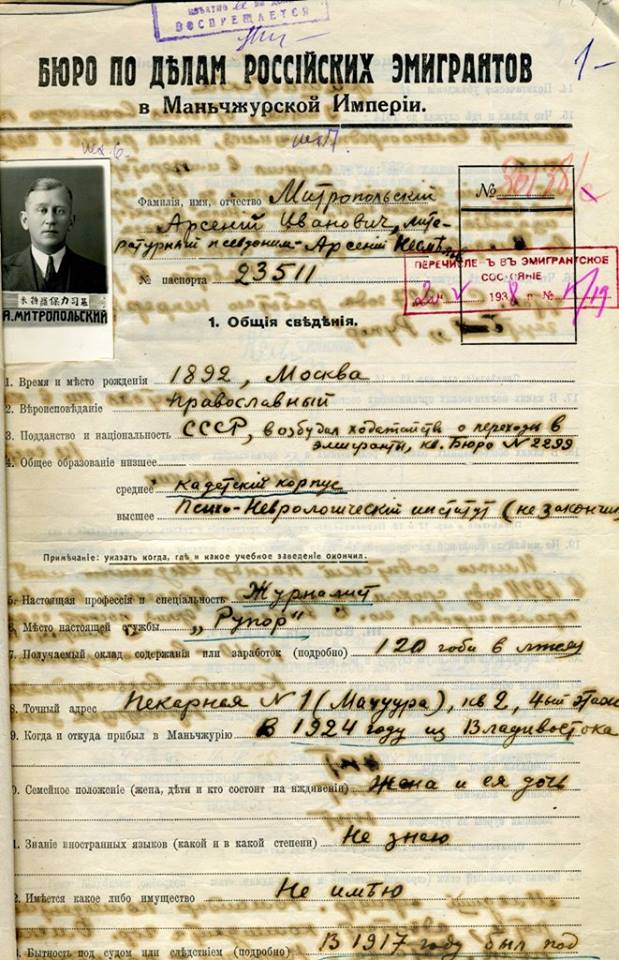 ВОСПРЕЩАЕТСЯ
1-
БЮРО ПО ДѢЛАМ РОССІЙСКИХ ЭМИГРАНТОВ
в Маньчжурской Имперіи.
Фамилія, имя, отчество Митропольскій
Арсеній Иванович, лите-
ратурный псевдоним - Арсеній Несмѣлов
№
№ паспорта 23511
ПЕРЕЧИСЛЕ-Ъ ВЪ ЭМИГРАНТСКОЕ
СОСТОЯНІЕ
1938 г. №
А. МИТРОПОЛЬСКІЙ
1. Общія свѣдѣнія.
1. Время и мѣсто рожденія 1892, Москва
2. Вѣроисповѣданіе Православный
3. Подданство и національность СССР, возбудил ходатайств о переходѣ в
эмигранты, кв. Бюро № 2299
4. Общее образованіе низшее
среднее Кадетскій корпус
высшее Психо-Неврологическій институт (не закончил
Примѣчаніе: указать когда, гдѣ и какое учебное заведеніе окончил.
5. Настоящая профессія и спеціальность Журналист
6. Мѣсто настоящей службы „Рупор"
7. Получаемый оклад содержанія или заработок (подробно) 120 гоби в мѣсяц
8. Точный адрес Пекарная № 1 (Мацуура), кв 2, 4ый этаж
9. Когда и откуда прибыл в Маньчжурію В 1924 году из Владивостока
0. Семейное положеніе (жена, дѣти и кто состоит на иждивеніи) Жена и ея дочь
1. Знаніе иностранных языков (какой и в какой степени) Не знаю
2. Имѣется какое либо имущество Не имѣю
3. Бытность под судом или слѣдствіем (подробно) В 1917 году был под